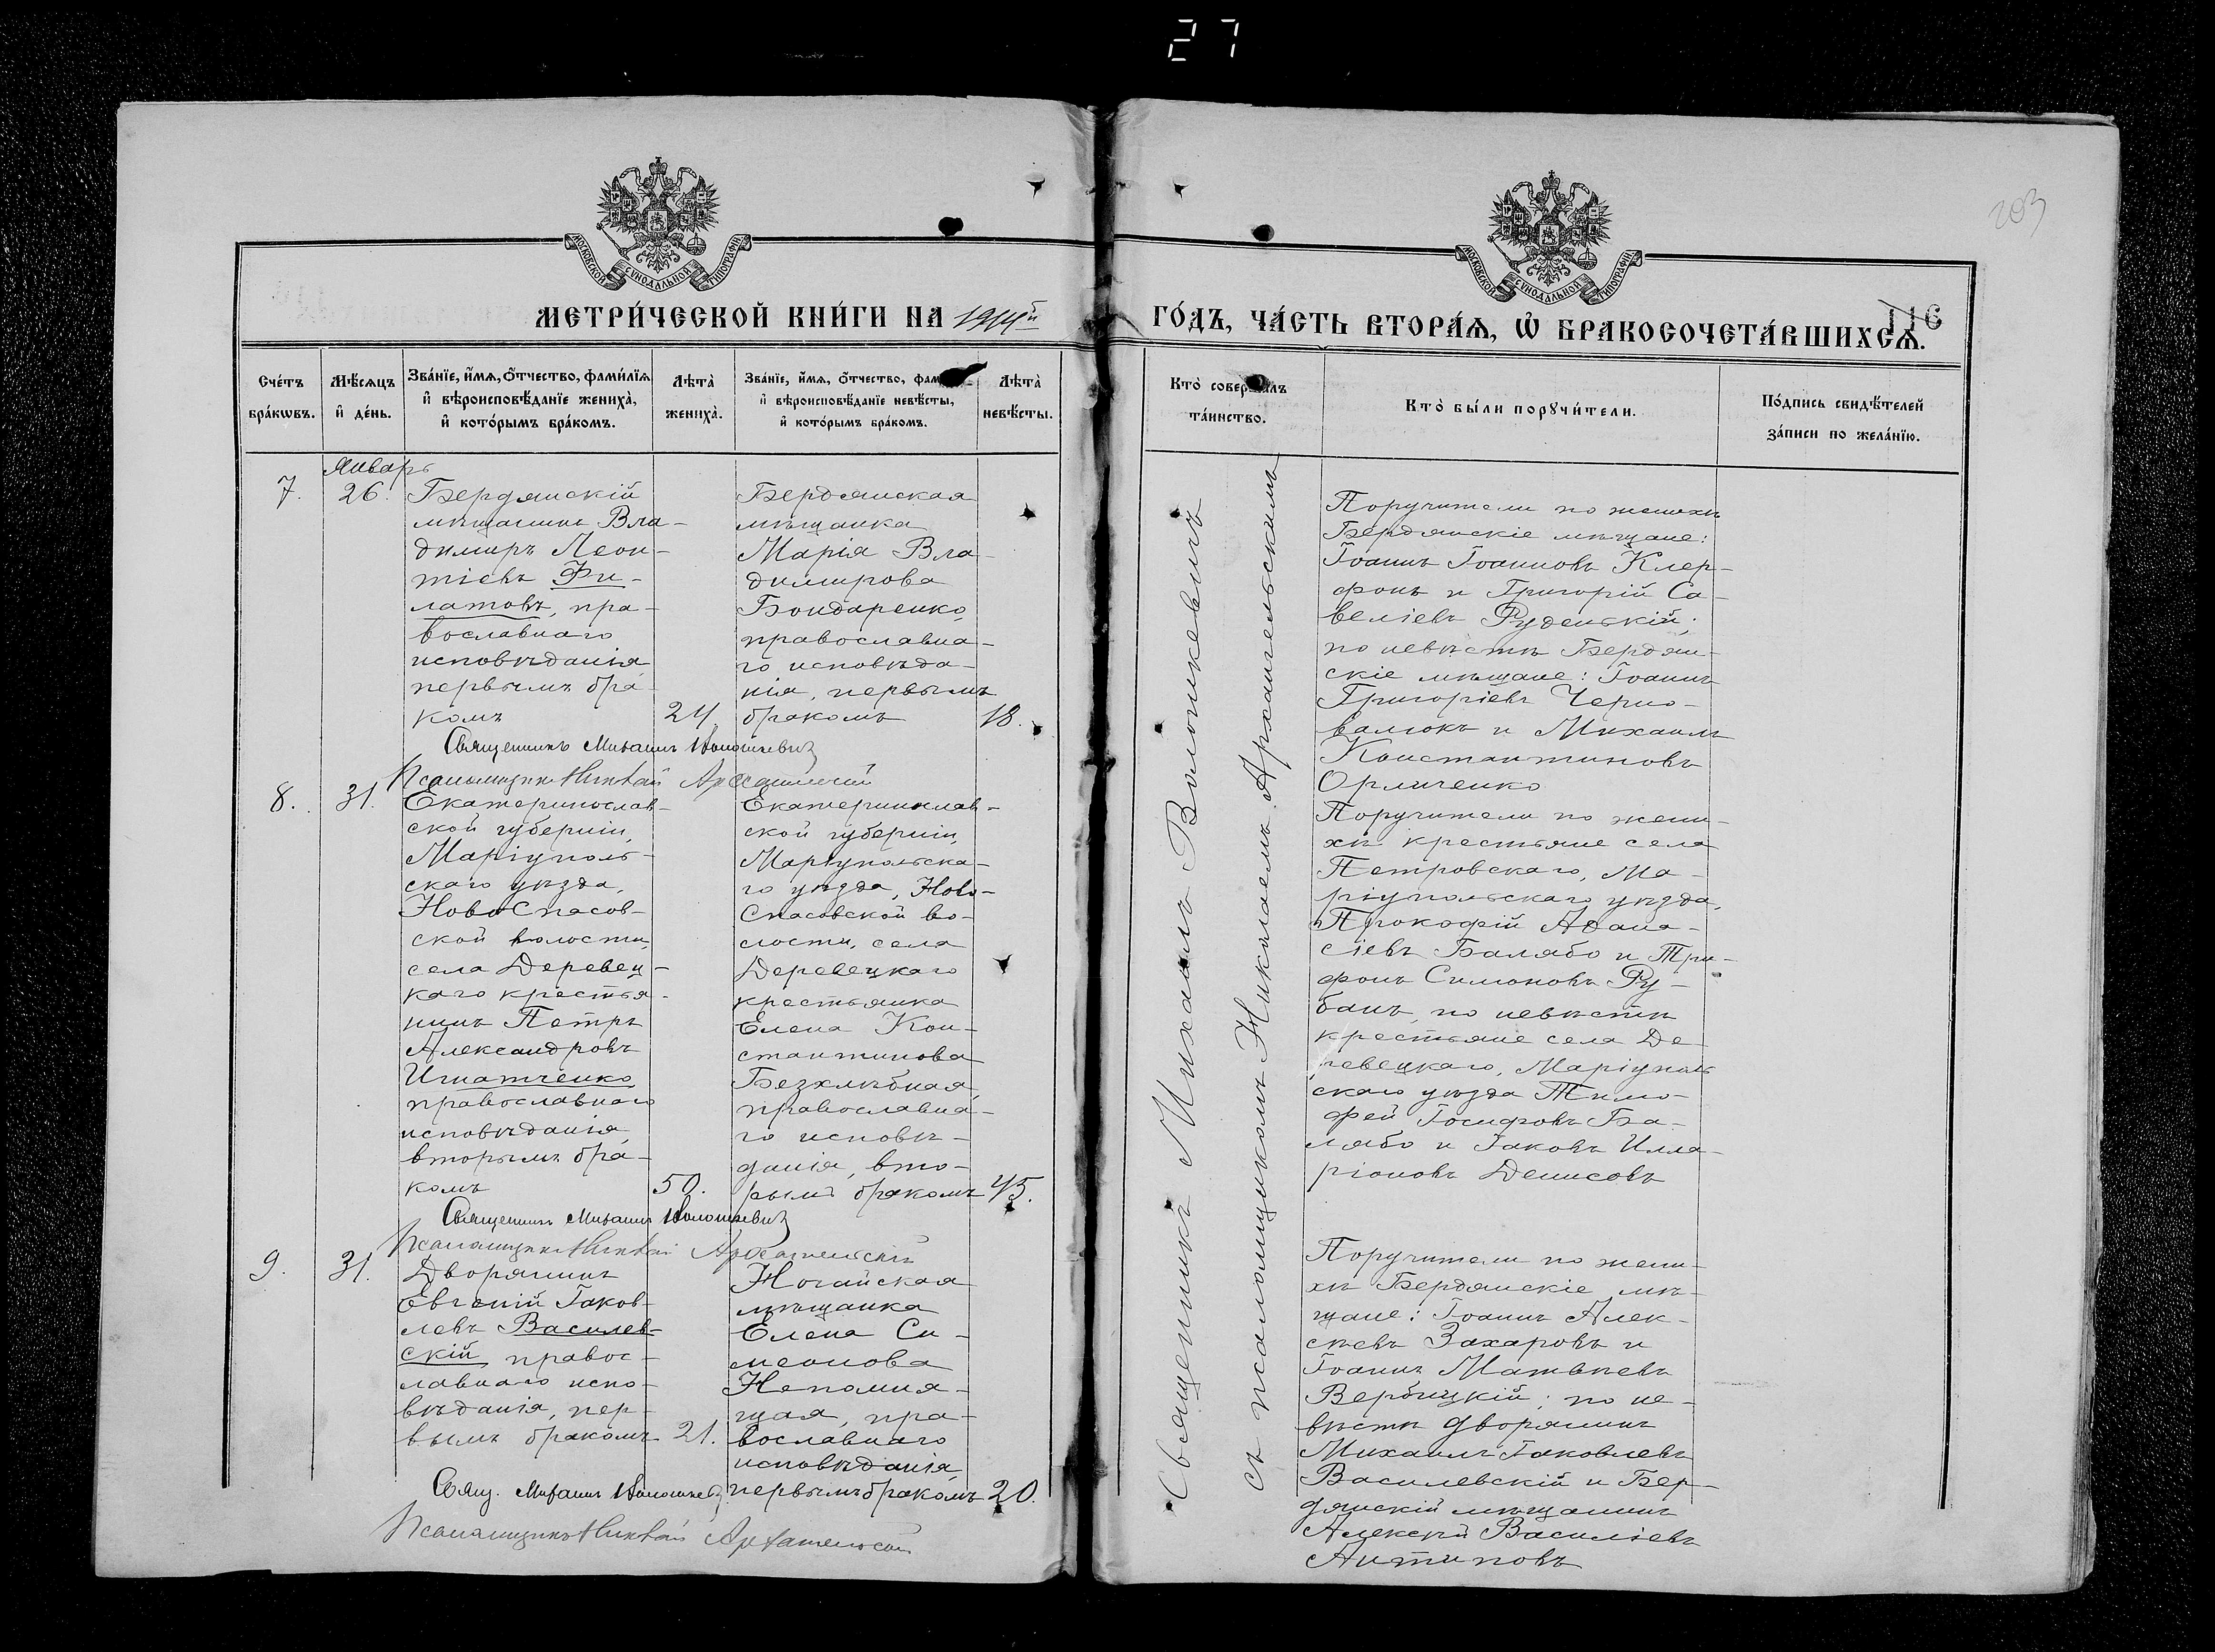 27
203
116
МОСКОВСКОЙ СѴНОДАЛЬНОЙ ТИПОГРАФІИ
МЕТРИ́ЧЕСКОЙ КНИ́ГИ НА 1914й
Сче́тъ бра́кѡвъ.
Мѣ́сяцъ и҆ де́нь.
Зва́нїе, и҆́мѧ, ѻ҆́тчество, фами́лїѧ
и҆ вѣроисповѣ́данїе жениха̀,
и҆ кото́рымъ бра́комъ.
Лѣта̀ жениха̀.
Зва́нїе, и҆́мѧ, ѻ҆́тчество,
и҆ вѣроисповѣ́данїе невѣ́сты,
и҆ кото́рымъ бра́комъ.
Лѣта̀ невѣ́сты.
7.
Январь
26.
Бердянскій
мѣщанинъ Вла-
димиръ Леон-
тіевъ Фи-
латовъ, пра-
вославнаго
исповѣданія
первымъ бра-
комъ
24
Бердянская
мѣщанка
Марія Вла-
димирова
Бондаренко,
православна-
го исповѣда-
нія, первымъ
бракомъ
18.
Священникъ Михаилъ Волошкевичъ
Псаломщикъ Николай Архангельскій
8.
31.
Екатеринослав-
ской губерніи,
Маріуполь-
скаго уѣзда,
НовоСпасов-
ской волости,
села Деревец-
каго крестья-
нинъ Петръ
Александровъ
Игнатченко
православнаго
исповѣданія,
вторымъ бра-
комъ
50.
Екатеринослав-
ской губерніи,
Маріупольска-
го уѣзда, Ново-
Спасовской во-
лости, села
Деревецкаго
крестьянка
Елена Кон-
стантинова
Безхлѣбная,
православна-
го исповѣ-
данія, вто-
рымъ бракомъ
45.
Священникъ Михаилъ Волошкевичъ
Псаломщикъ Николай Архангельскій
9.
31.
Дворянинъ
Евгеній Іаков-
левъ Василев-
скій правос-
лавнаго испо-
вѣданія, пер-
вымъ бракомъ
21.
Ногайская
мѣщанка
Елена Си-
меонова
Непомня-
щая, пра-
вославнаго
исповѣданія,
первымъ бракомъ
20.
Свящ. Михаилъ Волошкевичъ
Псаломщикъ Николай Архангельскій
МОСКОВСКОЙ СѴНОДАЛЬНОЙ ТИПОГРАФІИ
ГО́ДЪ, ЧА́СТЬ ВТОРА́Ѧ, Ѡ҆ БРАКОСОЧЕТА́ВШИХСѦ.
Кто̀ соверша́лъ
та́инство.
Кто̀ бы́ли порꙋчи́тели.
По́дпись свидѣ́телей
за́писи по жела́нїю.
Священникъ Михаилъ Волошкевичъ
съ псаломщикомъ Николаемъ Архангельскимъ
Поручители по женихѣ
Бердянскіе мѣщане:
Іоаннъ Іоанновъ Клер-
фонъ и Григорій Са-
веліевъ Руденькій;
по невѣстѣ Бердян-
скіе мѣщане: Іоаннъ
Григоріевъ Черно-
валюкъ и Михаилъ
Константиновъ
Орличенко
Поручители по жени-
хѣ крестьяне села
Петровскаго, Ма-
ріупольскаго уѣзда,
Прокофій Афана-
сіевъ Балябо и Три-
фонъ Симоновъ Ру-
банъ, по невѣстѣ
крестьяне села Де-
ревецкаго, Маріуполь
скаго уѣзда Тимо-
фей Іосифовъ Ба-
лябо и Іаковъ Илла-
ріоновъ Денисовъ
Поручители по жени-
хѣ Бердянскіе мѣ-
щане: Іоаннъ Алек-
сѣевъ Захаровъ и
Іоаннъ Матвѣевъ
Вербицкій; по не-
вѣстѣ дворянинъ
Михаилъ Іаковлевъ
Василевскій и Бер-
дянскій мѣщанинъ
Алексѣй Василіевъ
Антиповъ